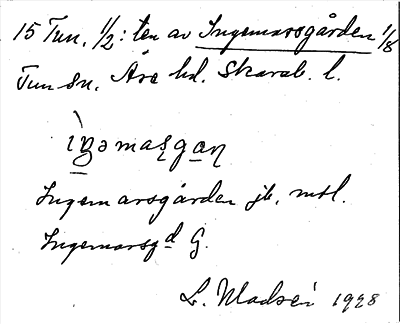 15 Tun. 1/2: ten av Ingemarsgården 1/8
Tun sn. Åse hd. Skarab. l.
ìŋəmaʂgaɳ
Ingemarsgården jb, mtl.
Ingemarsgd G.
L. Madsén 1928